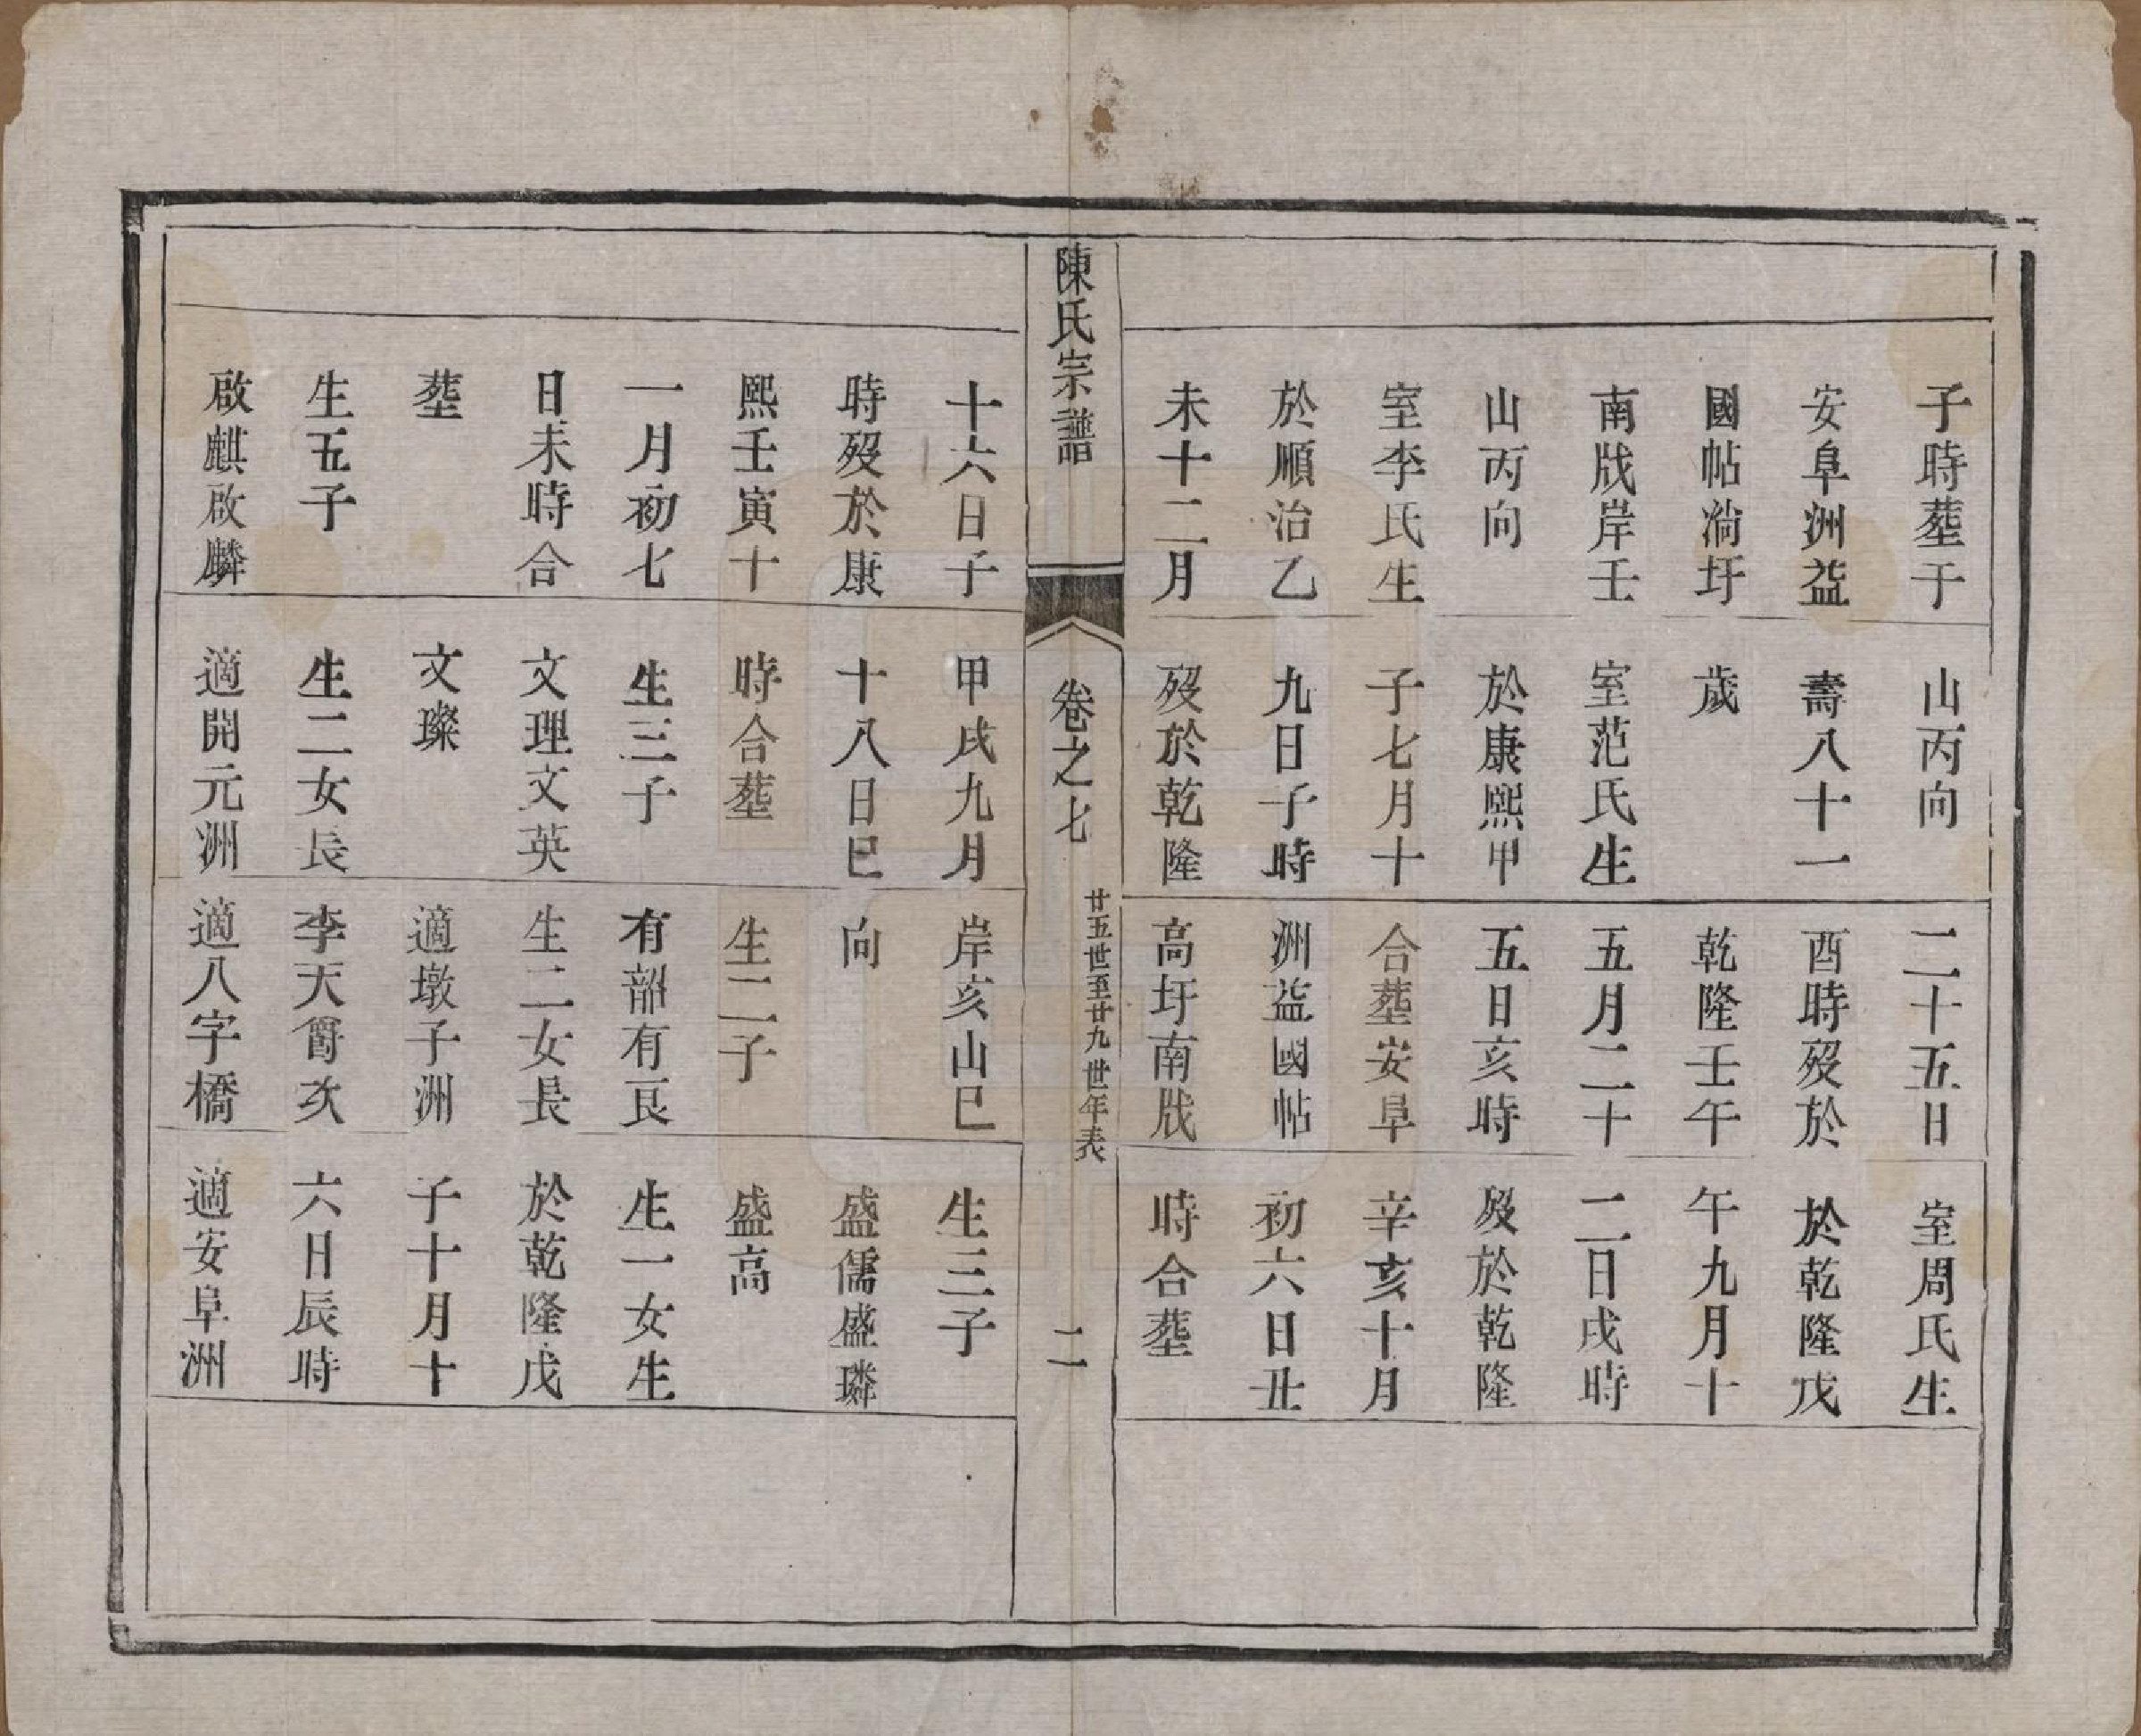 陳氏宗譜
卷之七
廿五世至廿九世年表
二
子時塟于
安阜洲益
國帖淌圩
南戕岸壬
山丙向
室李氏生
於順治乙
未十二月
十六日子
時歿於康
熙壬寅十
一月初七
日未時合
塟
生五子
啟麒啟麟
山丙向
壽八十一
歲
室范氏生
於康熙甲
子七月十
九日子時
歿於乾隆
甲戌九月
十八日巳
時合塟
生三子
文理文英
文璨
生二女長
適開元洲
二十五日
酉時歿於
乾隆壬午
五月二十
五日亥時
合塟安阜
洲益國帖
高圩南戕
岸亥山巳
向
生二子
有韶有良
生二女長
適墩子洲
李天爵次
適八字橋
室周氏生
於乾隆戊
午九月十
二日戌時
歿於乾隆
辛亥十月
初六日丑
時合塟
生三子
盛儒盛璘
盛高
生一女生
於乾隆戊
子十月十
六日辰時
適安阜洲